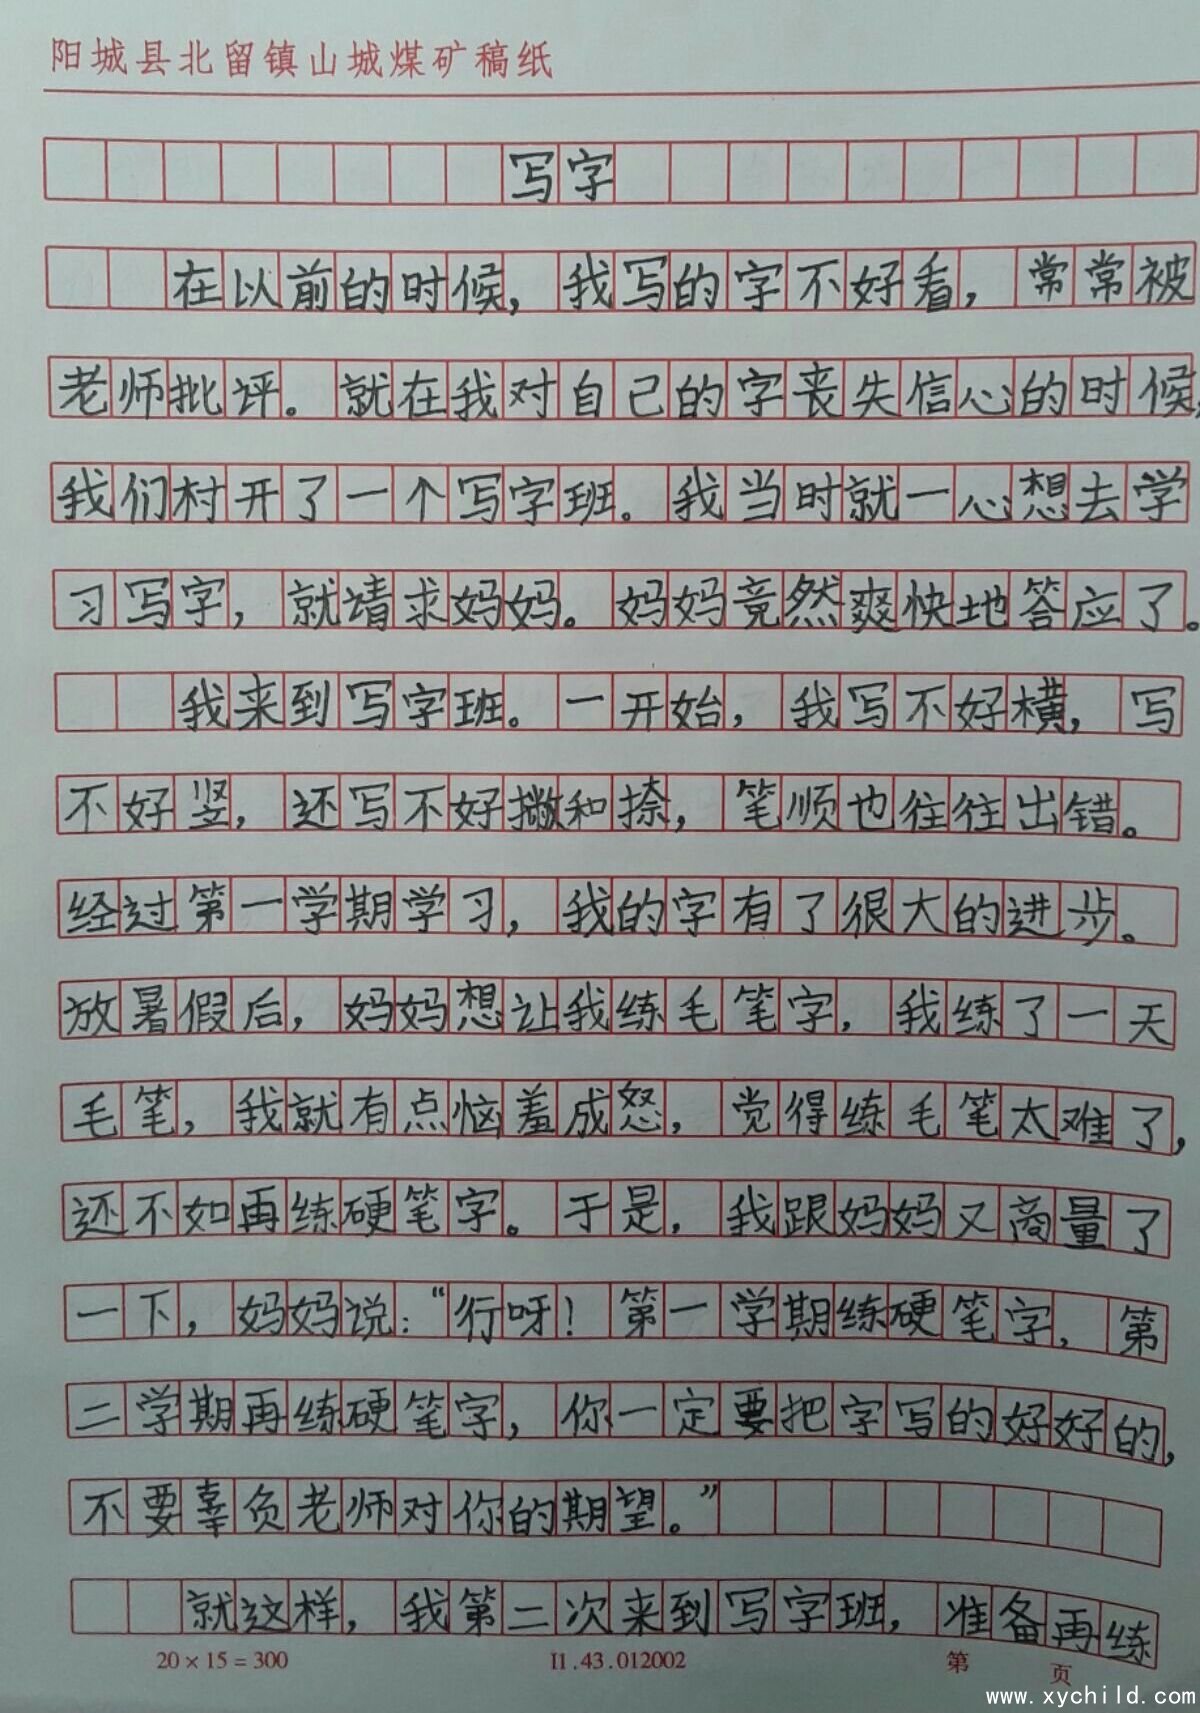 阳城县北留镇山城煤矿稿纸
写字
在以前的时候，我写的字不好看，常常被
老师批评。就在我对自己的字丧失信心的时候，
我们村开了一个写字班。我当时就一心想去学
习写字，就请求妈妈。妈妈竟然爽快地答应了。
我来到写字班。一开始，我写不好横，写
不好竖，还写不好撇和捺，笔顺也往往出错。
经过第一学期学习，我的字有了很大的进步。
放暑假后，妈妈想让我练毛笔字，我练了一天
毛笔，我就有点恼羞成怒，觉得练毛笔太难了，
还不如再练硬笔字。于是，我跟妈妈又商量了
一下，妈妈说：“行呀！第一学期练硬笔字，第
二学期再练硬笔字，你一定要把字写的好好的，
不要辜负老师对你的期望。”
就这样，我第二次来到写字班，准备再练
20×15=300 II.43.012002 第 页
www.xychild.com